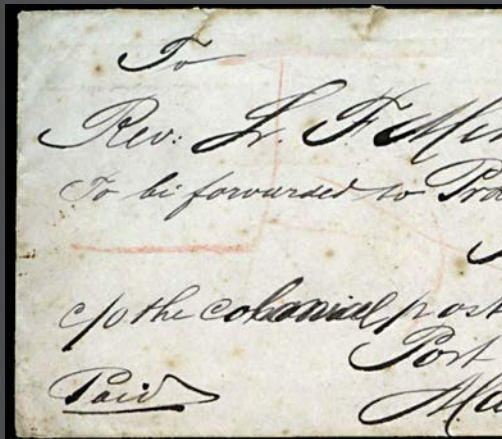 To
Rev: L. F. M
To be forwarded to
c/o the colonial post
Port
Paid